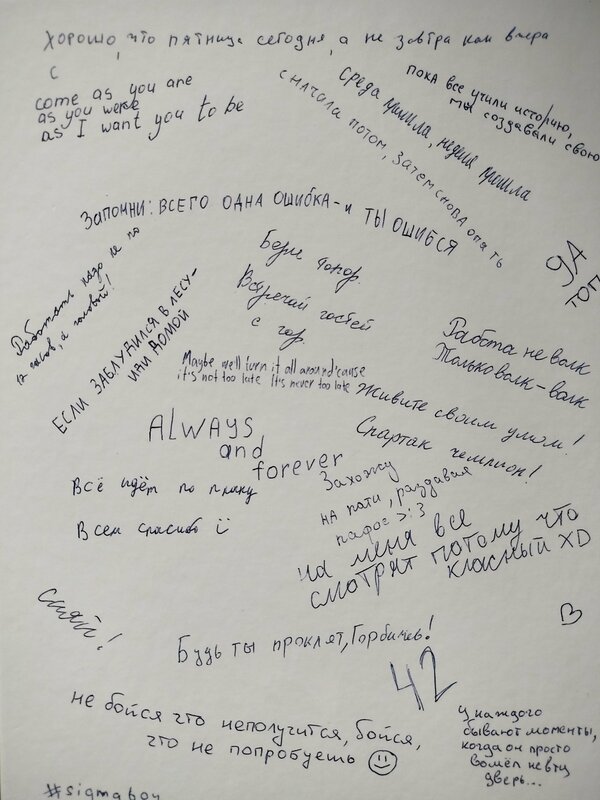 Хорошо, что пятница сегодня, а не завтра как вчера
с
come as you are
as you were
as I want you to be
пока все учили историю,
мы создавали свою
Среда пришла, неделя прошла
сначала потом, затем снова опять
Запомни: всего одна ошибка - и ты ошибся
Работать надо не по
12 часов, а головой!
Если заблудился в лесу -
иди домой
Бери топор
Встречай гостей
с гор
Работа не волк
Только волк - волк
Maybe we'll turn it all around 'cause
it's not too late It's never too late
Живите своим умом!
Спартак чемпион!
ALWAYS
and
forever
Захожу
на пати, раздавая
пафос >:3
Всё идёт по плану
на меня все
смотрят потому что
класный XD
Всем спасибо
Будь ты проклят, Горбичев!
42
не бойся что неполучится, бойся,
что не попробуешь
у каждого
бывают моменты,
когда он просто
вошёл не в ту
дверь...
#sigmaboy